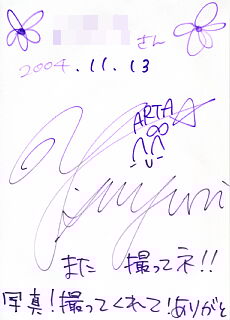 さん
2004.11.13
ARTA
また 撮ってネ!!
写真!撮ってくれて!ありがと